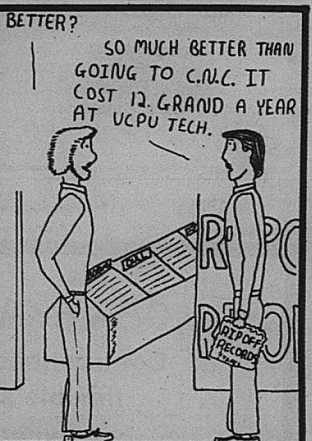 BETTER?
SO MUCH BETTER THAN
GOING TO C.N.C. IT
COST 12. GRAND A YEAR
AT UCPU TECH.
RIPOFF
RECORDS